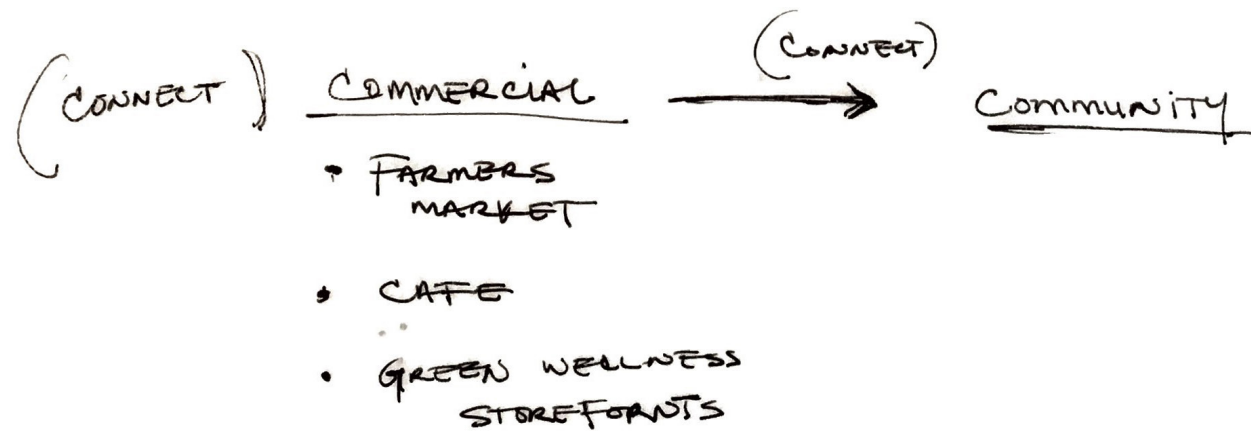 (CONNECT)
(CONNECT) COMMERCIAL → COMMUNITY
• FARMERS
MARKET
• CAFE
• GREEN WELLNESS
STOREFORNTS